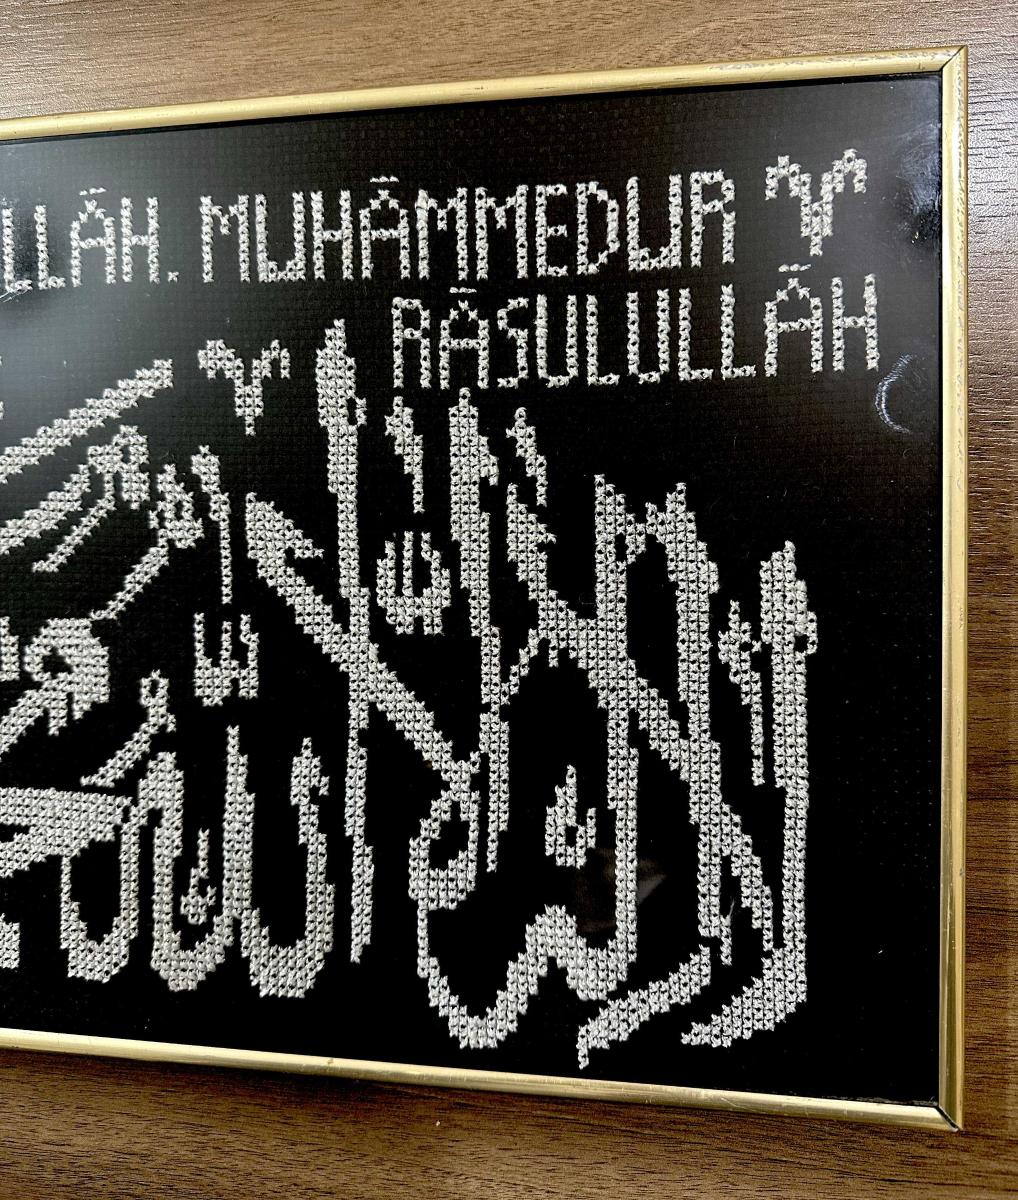 LLÂH. MUHÂMMEDUR
RÂSULULLÂH
لا إله إلا الله